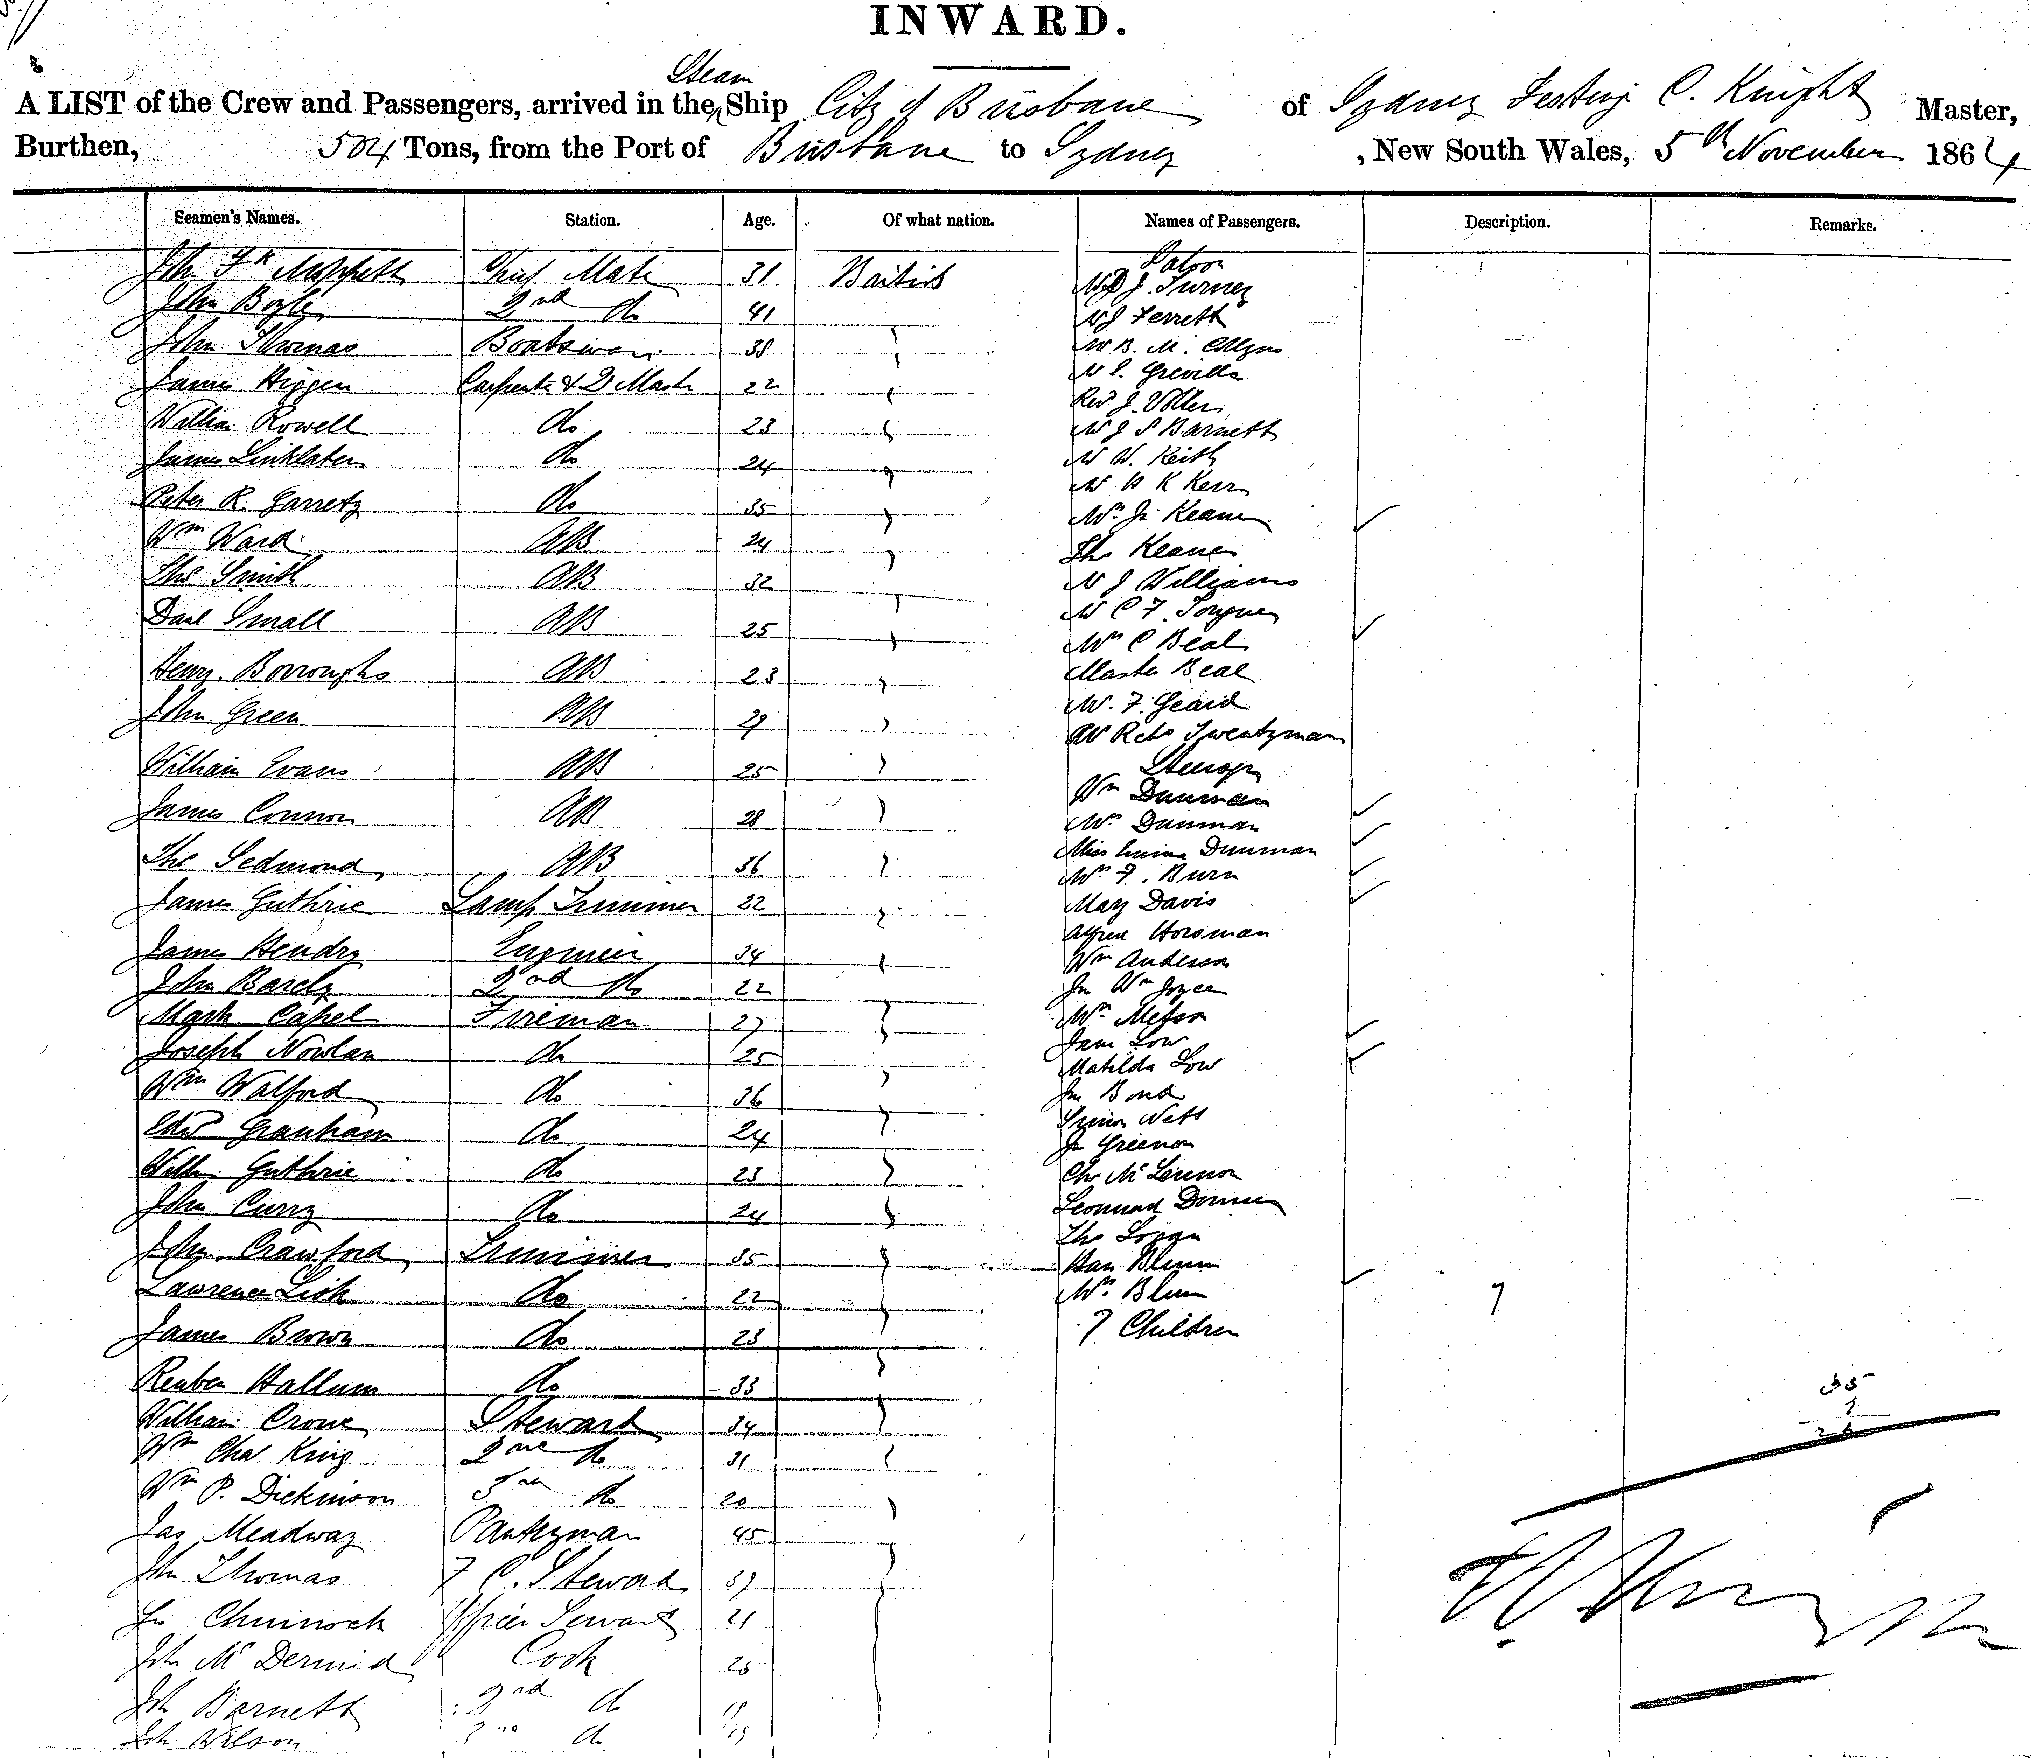 INWARD.
Steam
A LIST of the Crew and Passengers, arrived in the Ship City of Brisbane of Sydney C. Knight Master,
Burthen, 504 Tons, from the Port of Brisbane to Sydney , New South Wales, 5th November 1864
Seamen's Names. Station. Age. Of what nation. Names of Passengers. Description. Remarks.
Chief Mate 31 British
Saloon
J. Turner
John Boyle 2nd do 41
J Ferrett
John Thomas Boatswain 38
B. M.
James Higgen Carpenter & 22
Greville
Revd J. Voller
William Rowell do 23
Mr J S Barnett
James Linklater do 24
Mr W. Keith
Mr K Kerr
Peter R. Garrety do 35
Mrs Js Keane
Wm Ward AB 24
Tho Keane
Thos Smith AB 32
Mr J Williams
Danl Small AB 25
Mr C F
Mrs C Beal
Henry Borroughs AB 23
Master Beal
John Green AB 29
Mr. F. Geard
Mr Twentyman
William Evans AB 25
Steerage
Wm Dunman
James Connor AB 28
Mrs Dunman
Miss Dunman
Thos Sedmond AB 36
Mrs F. Burn
James Guthrie Lamp Trimmer 22
Mary Davis
Alfred Horsman
James Hendry Engineer 34
Wm Anderson
John Barely 2nd do 22
Jn Wm Joyce
Mark Capel Fireman 27
Mr
Joseph Nowlan do 25
Jane Low
Matilda Low
Wm Walford do 36
Jn Bond
Edwd Granham do 24
Simon
Jn Greenon
Willm Guthrie do 23
Chs McLennon
John Curry do 24
Leonard
Tho Logan
John Crawford Trimmer 35
Han Blum
Lawrence Lisk do 22
Mrs Blum 7
James Brown do 23
7 Children
Reuben Hallum do 33
35
7
William Crowe Steward 34
Wm Chas King 2nd do 31
Wm P. Dickinson 3rd do 20
Jas Meadway Pantryman 45
Jhn Thomas F C. Steward 39
Jn Chinnock Officers Servant 21
Jhn McDermid Cook 25
Jhn Barnett 2nd do 19
Jhn Wilson do 19